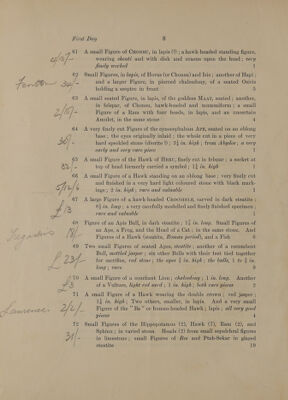 First Day 8
4/15/-
61 A small Figure of CHONSU, in lapis (?); a hawk-headed standing figure,
wearing shenti and with disk and uraeus upon the head; very
finely worked 1
Fenton 34/-
62 Small Figures, in lapis, of Horus (or Chonsu) and Isis; another of Hapi;
and a larger Figure, in pierced chalcedony, of a seated Osiris
holding a sceptre in front 5
63 A small seated Figure, in lapis, of the goddess MAAT, seated; another,
in felspar, of Chonsu, hawk-headed and mummiform; a small
Figure of a Ram with four heads, in lapis, and an uncertain
Amulet, in the same stone 4
64 A very finely cut Figure of the cynocephalous APE, seated on an oblong
base; the eyes originally inlaid; the whole cut in a piece of very
hard speckled stone in. high; from Abydos; a very
early and very rare piece 1
65 A small Figure of the Hawk of HERAT, finely cut in a socket at
top of head formerly carried a symbol; in. high 1
66 A small Figure of a Hawk standing on an oblong base; very finely cut
and finished in a very hard light coloured stone with black mark-
ings; 2 in. high; rare and valuable 1
£13
67 A large figure of a hawk-headed CROCODILE, carved in dark steatite;
in. long; a very carefully modelled and finely finished specimen;
rare and valuable 1
68 Figure of an Apis Bull, in dark steatite; in. long. Small Figures of
an Ape, a Frog, and the Head of a Cat; in the same stone. And
Figures of a Hawk (steatite, Roman period), and a Fish 6
£23/-
69 Two small Figures of seated Apes, steatite; another of a recumbent
Bull, mottled jasper; six other Bulls with their feet tied together
for sacrifice, red stone; the apes in. high; the bulls, 1 to in.
long; rare 9
£3
70 A small Figure of a couchant Lion; chalcedony; 1 in. long. Another
of a Vulture, light red sard; 1 in. high; both rare pieces 2
Lawrence 2/2/-
71 A small Figure of a Hawk wearing the double crown; red jasper;
in. high; Two others, smaller, in lapis. And a very small
Figure of the "Ba" or human-headed Hawk; lapis; all very good
pieces 4
31/-
72 Small Figures of the Hippopotamus (2), Hawk (7), Ram (2), and
Sphinx; in varied stone. Heads (2) from small sepulchral figures
in limestone; small Figures of Bes and Ptah-Sekar in glazed
steatite 19